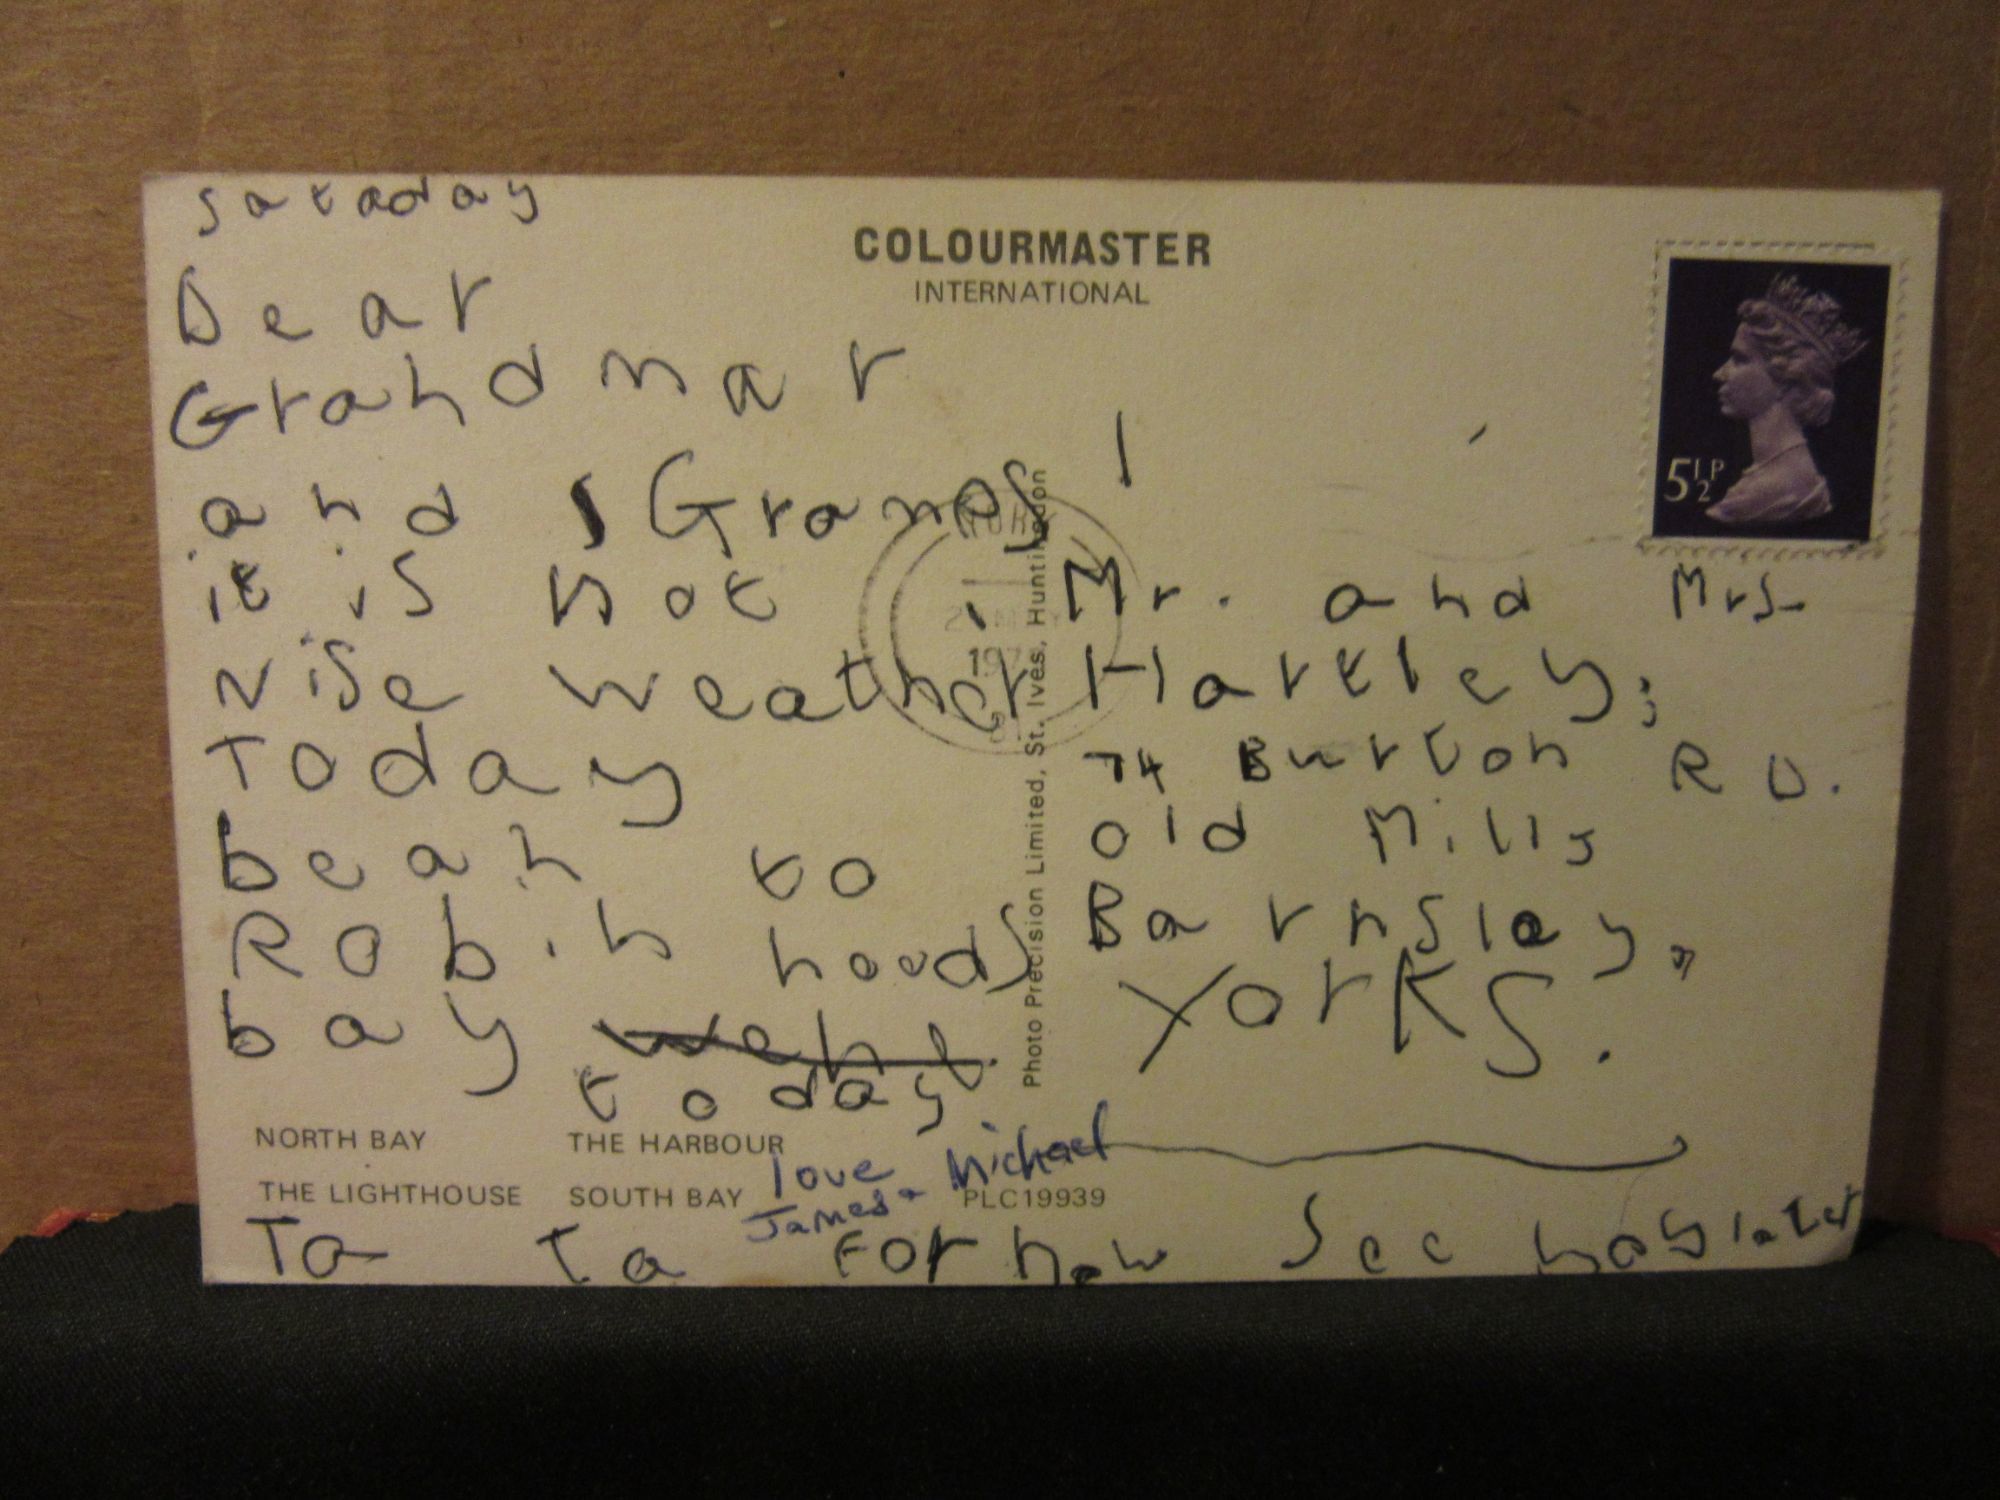 sataday
Dear
Grandmar
and Grampy
it is not
nise weather
Today
bean to
Robin hoods
bay went
today
love Michael
James +
Ta Ta For now See you later
COLOURMASTER
INTERNATIONAL
5½P
197
Photo Precision Limited, St. Ives, Huntingdon
Mr. and Mrs
Hartley,
74 Burton RD.
Old Mills
Barnsley,
YorKS.
NORTH BAY THE HARBOUR
THE LIGHTHOUSE SOUTH BAY PLC19939